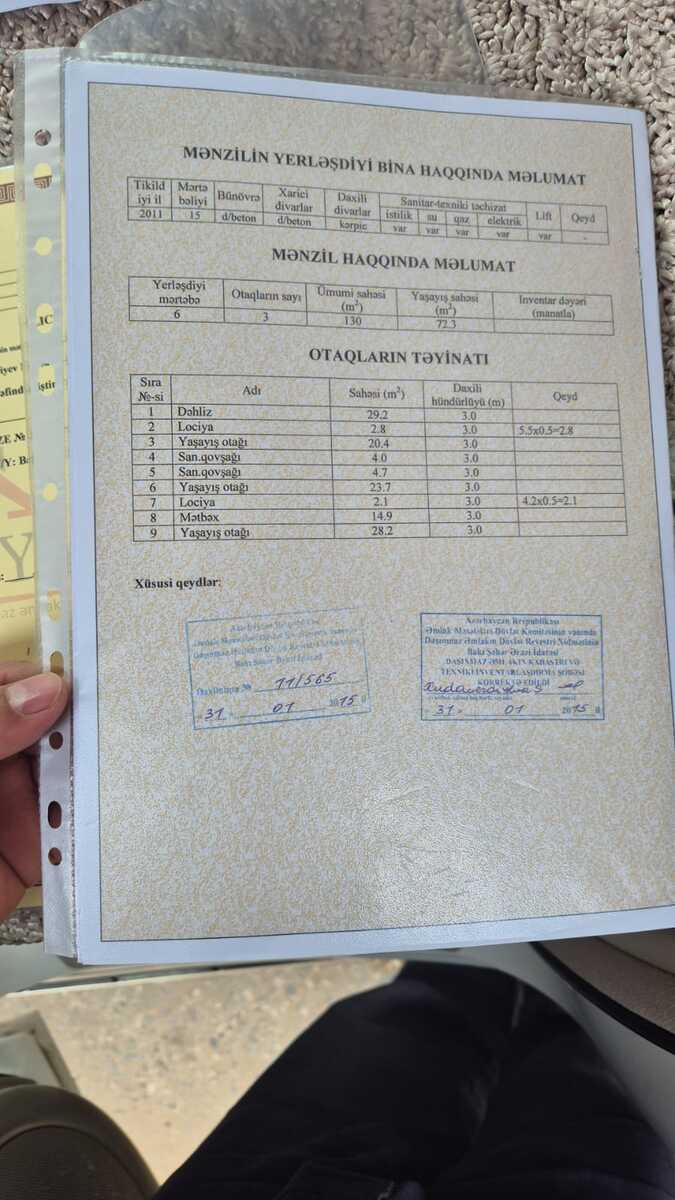 MƏNZİLİN YERLƏŞDİYİ BİNA HAQQINDA MƏLUMAT
Tikild iyi il Mərtə bəliyi Bünövrə Xarici divarlar Daxili divarlar Sanitar-texniki təchizat Lift Qeyd
istilik su qaz elektrik
2011 15 d/beton d/beton kərpic var var var var var -
MƏNZİL HAQQINDA MƏLUMAT
Yerləşdiyi mərtəbə Otaqların sayı Ümumi sahəsi (m²) Yaşayış sahəsi (m²) İnventar dəyəri (manatla)
6 3 130 72.3
OTAQLARIN TƏYİNATI
Sıra №-si Adı Sahəsi (m²) Daxili hündürlüyü (m) Qeyd
1 Dəhliz 29.2 3.0
2 Lociya 2.8 3.0 5.5x0.5=2.8
3 Yaşayış otağı 20.4 3.0
4 San.qovşağı 4.0 3.0
5 San.qovşağı 4.7 3.0
6 Yaşayış otağı 23.7 3.0
7 Lociya 2.1 3.0 4.2x0.5=2.1
8 Mətbəx 14.9 3.0
9 Yaşayış otağı 28.2 3.0
Xüsusi qeydlər:
Azərbaycan Respublikası
Əmlak Məsələləri Dövlət Komitəsinin yanında
Daşınmaz Əmlakın Dövlət Reyestri Xidmətinin
Bakı Şəhər Ərazi İdarəsi
Daxilolma № 11/565
"31" 01 2015
Azərbaycan Respublikası
Əmlak Məsələləri Dövlət Komitəsinin yanında
Daşınmaz Əmlakın Dövlət Reyestri Xidmətinin
Bakı Şəhər Ərazi İdarəsi
DAŞINMAZ ƏMLAKIN KADASTRI VƏ
TEXNİKİ İNVENTARLAŞDIRMA ŞÖBƏSİ
KORREKTƏ EDİLDİ
"31" 01 2015